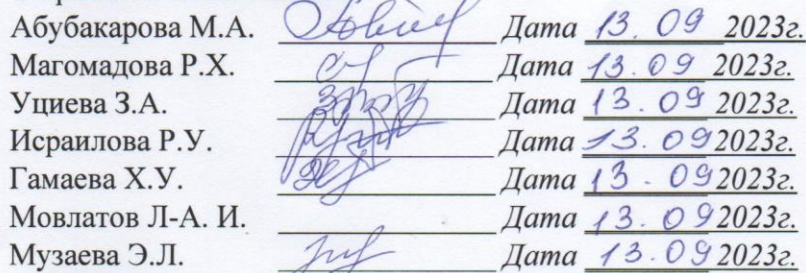 Абубакарова М.А. Дата 13.09 2023г.
Магомадова Р.Х. Дата 13.09 2023г.
Уциева З.А. Дата 13.09 2023г.
Исраилова Р.У. Дата 13.09 2023г.
Гамаева Х.У. Дата 13.09 2023г.
Мовлатов Л-А. И. Дата 13.09 2023г.
Музаева Э.Л. Дата 13.09 2023г.